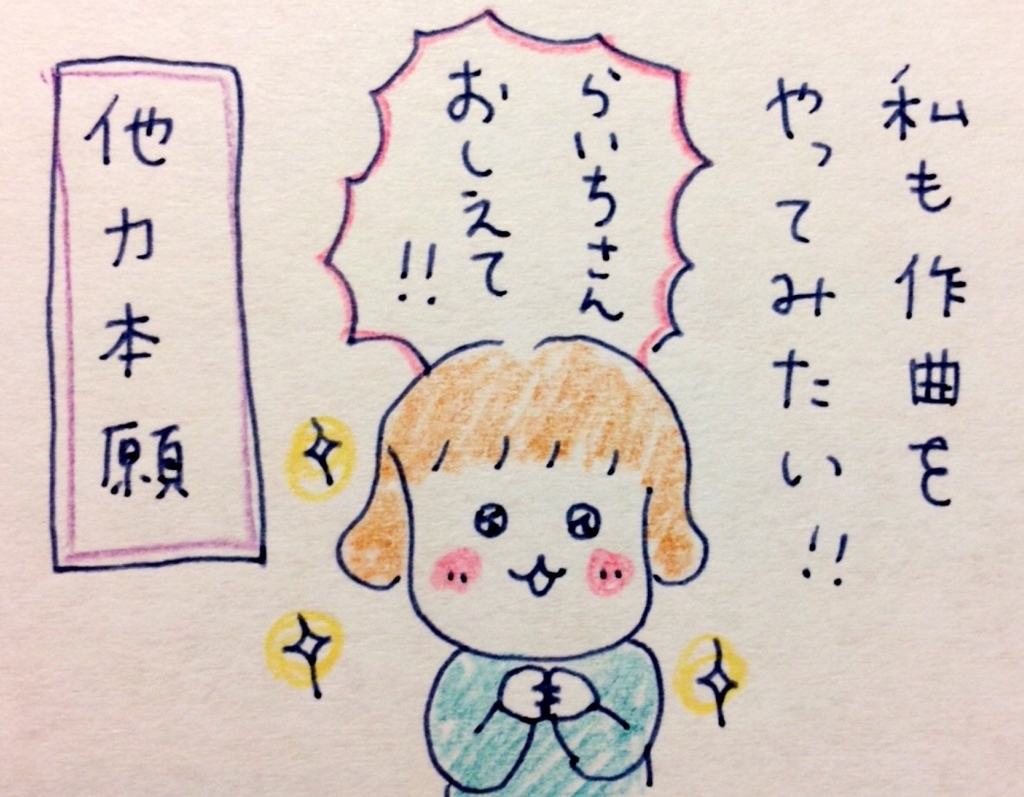 私も作曲を
やってみたい!!
らいちさん
おしえて
!!
他力本願